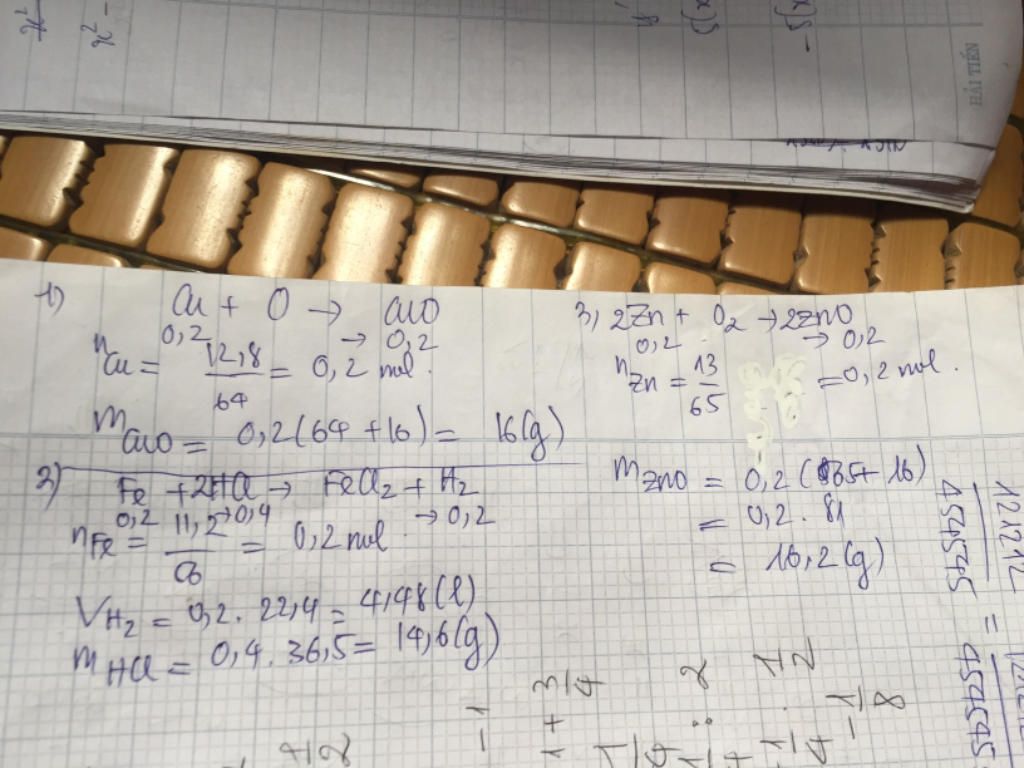 1) Cu + O → CuO
0,2 → 0,2
nCu = 12,8/64 = 0,2 mol.
mCuO = 0,2(64+16) = 16(g)
2) Fe + 2HCl → FeCl2 + H2
0,2 → 0,4 → 0,2
nFe = 11,2/56 = 0,2 mol
VH2 = 0,2 . 22,4 = 4,48(l)
mHCl = 0,4 . 36,5 = 14,6(g)
3, 2Zn + O2 → 2ZnO
0,2 → 0,2
nZn = 13/65 = 0,2 mol.
mZnO = 0,2(65+16)
= 0,2 . 81
= 16,2(g)
HẢI TIẾN
121212
454545
=